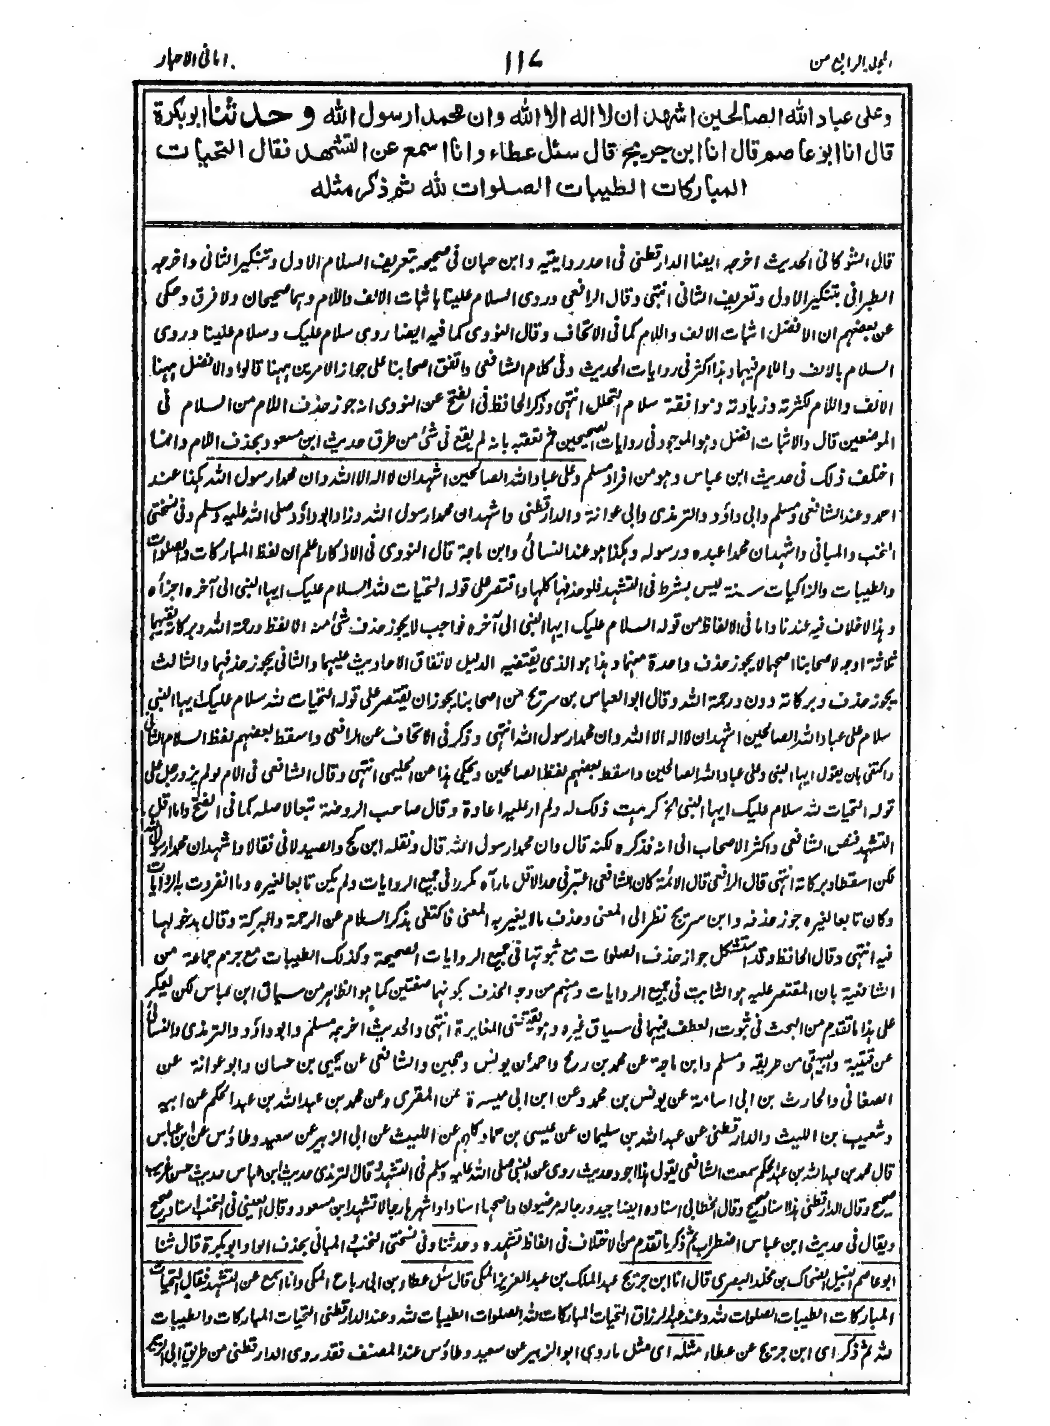 المجلد الرابع من
١١٧
امانی الاحبار
وعلى عباد الله الصالحين اشهد ان لا اله الا الله وان محمدا رسول الله وحدثنا ابو بكرة
قال انا ابو عاصم قال انا ابن جريج قال سئل عطاء وانا اسمع عن التشهد فقال التحيات
المباركات الطيبات الصلوات لله ثم ذكر مثله
قال الشوكانى الحديث اخرجه ايضا الدارقطنى فى احدى روايتيه وابن حبان فى صحيحه بتعريف السلام الاول وتنكير الثانى واخرجه
الطبرانى بتنكير الاول وتعريف الثانى انتهى وقال الرافعى وروى السلام علينا باثبات الالف واللام وهما صحيحان ولا فرق وحكى
عن بعضهم ان الافضل اثبات الالف واللام كما فى الاتحاف وقال النووى كما فيه ايضا روى سلام عليك وسلام علينا وروى
السلام بالالف واللام فيهما وهذا اكثر فى روايات الحديث وفى كلام الشافعى واتفق اصحابنا على جواز الامرين ههنا قالوا والافضل ههنا
الالف واللام لكثرته وزيادته وموافقة سلام التحلل انتهى وذكر الحافظ فى الفتح عن النووى انه جوز حذف اللام من السلام فى
الموضعين قال والاثبات افضل وهو الموجود فى روايات الصحيحين ثم تعقبه بانه لم يقع فى شئ من طرق حديث ابن مسعود بحذف اللام وانما
اختلف ذلك فى حديث ابن عباس وهو من افراد مسلم وعلى عباد الله الصالحين اشهد ان لا اله الا الله وان محمدا رسول الله كهذا عند
احمد وعند الشافعى ومسلم وابى داؤد والترمذى وابى عوانة والدارقطنى واشهد ان محمدا رسول الله وزاد ابو داؤد صلى الله عليه وسلم وفى نسختى
النخب والمبانى واشهد ان محمدا عبده ورسوله وهكذا هو عند النسائى وابن ماجة قال النووى فى الاذكار اعلم ان لفظ المباركات والصلوات
والطيبات والزاكيات سنة ليس بشرط فى التشهد فلو حذفها كلها واقتصر على قوله التحيات لله السلام عليك ايها النبى الى آخره اجزأه
وهذا لا خلاف فيه عندنا واما فى الالفاظ من قوله السلام عليك ايها النبى الى آخره فواجب لا يجوز حذف شئ منه الا لفظ ورحمة الله وبركاته ففيهما
ثلاثة اوجه لاصحابنا اصحها لا يجوز حذف واحدة منهما وهذا هو الذى يقتضيه الدليل لاتفاق الاحاديث عليهما والثانى يجوز حذفهما والثالث
يجوز حذف وبركاته دون ورحمة الله وقال ابو العباس بن سريج من اصحابنا يجوز ان يقتصر على قوله التحيات لله سلام عليك ايها النبى
سلام على عباد الله الصالحين اشهد ان لا اله الا الله وان محمدا رسول الله انتهى وذكر فى الاتحاف عن الرافعى واسقط بعضهم لفظ السلام الثانى
واكتفى بان يقول ايها النبى وعلى عباد الله الصالحين واسقط بعضهم لفظ الصالحين ويحكى هذا عن الحليمى انتهى وقال الشافعى فى الام لو لم يزد رجل على
قوله التحيات لله سلام عليك ايها النبى الخ كرهت ذلك له ولم ار عليه اعادة وقال صاحب الروضة تبعا لاصله كما فى الفتح واما اقل
التشهد فنص الشافعى واكثر الاصحاب الى انه فذكره لكنه قال وان محمدا رسول الله قال ونقله ابن كج والصيدلانى فقالا واشهد ان محمدا رسول الله
لكن اسقطا وبركاته انتهى قال الرافعى قال الائمة كان الشافعى اعتبر فى حد الاقل ما رآه مكررا فى جميع الروايات ولم يكن تابعا لغيره وما انفردت به الروايات
وكان تابعا لغيره جوز حذفه وابن سريج نظر الى المعنى وحذف ما لا يغير به المعنى فاكتفى بذكر السلام عن الرحمة والبركة وقال بدخولها
فيه انتهى وقال الحافظ وقد استشكل جواز حذف الصلوات مع ثبوتها فى جميع الروايات الصحيحة وكذلك الطيبات مع جزم جماعة من
الشافعية بان المقتصر عليه هو الثابت فى جميع الروايات ومنهم من وجه الحذف بكونهما صفتين كما هو الظاهر من سياق ابن عباس لكن يعكر
على هذا ما تقدم من البحث فى ثبوت العطف فيهما فى سياق غيره وهو يقتضى المغايرة انتهى والحديث اخرجه مسلم وابو داؤد والترمذى والنسائى
عن قتيبة والبيهقى من طريقه ومسلم وابن ماجة عن محمد بن رمح واحمد عن يونس وحجين والشافعى عن يحيى بن حسان وابو عوانة عن
الصغانى والحارث بن ابى اسامة عن يونس بن محمد وعن ابن ابى ميسرة عن المقرى وعن محمد بن عبد الله بن عبد الحكم عن ابيه
وشعيب بن الليث والدارقطنى عن عبد الله بن سليمان عن عيسى بن حماد كلهم عن الليث عن ابى الزبير عن سعيد وطاؤس عن ابن عباس
قال محمد بن عبد الله بن عبد الحكم سمعت الشافعى يقول هذا اجود حديث روى عن النبى صلى الله عليه وسلم فى التشهد وقال الترمذى حديث ابن عباس حديث حسن غريب
صحيح وقال الدارقطنى هذا اسناد صحيح وقال الخطابى اسناده ايضا جيد ورجاله مرضيون واصحها اسنادا واشهرها رجالا تشهد ابن مسعود وقال العينى فى النخب اسناد صحيح
ويقال فى حديث ابن عباس اضطراب ثم ذكر ما تقدم من الاختلاف فى الفاظ تشهده وحدثنا وفى نسختى النخب والمبانى بحذف الواو ابو بكرة قال ثنا
ابو عاصم النبيل الضحاك بن مخلد البصرى قال انا ابن جريج عبد الملك بن عبد العزيز المكى قال سئل عطاء بن ابى رباح المكى وانا اسمع عن التشهد فقال التحيات
المباركات الطيبات الصلوات لله وعند عبد الرزاق التحيات المباركات لله الصلوات الطيبات لله وعند الدارقطنى التحيات المباركات والطيبات
لله ثم ذكر اى ابن جريج عن عطاء مثله اى مثل ما روى ابو الزبير عن سعيد وطاؤس عند المصنف فقد روى الدارقطنى من طريق ابى